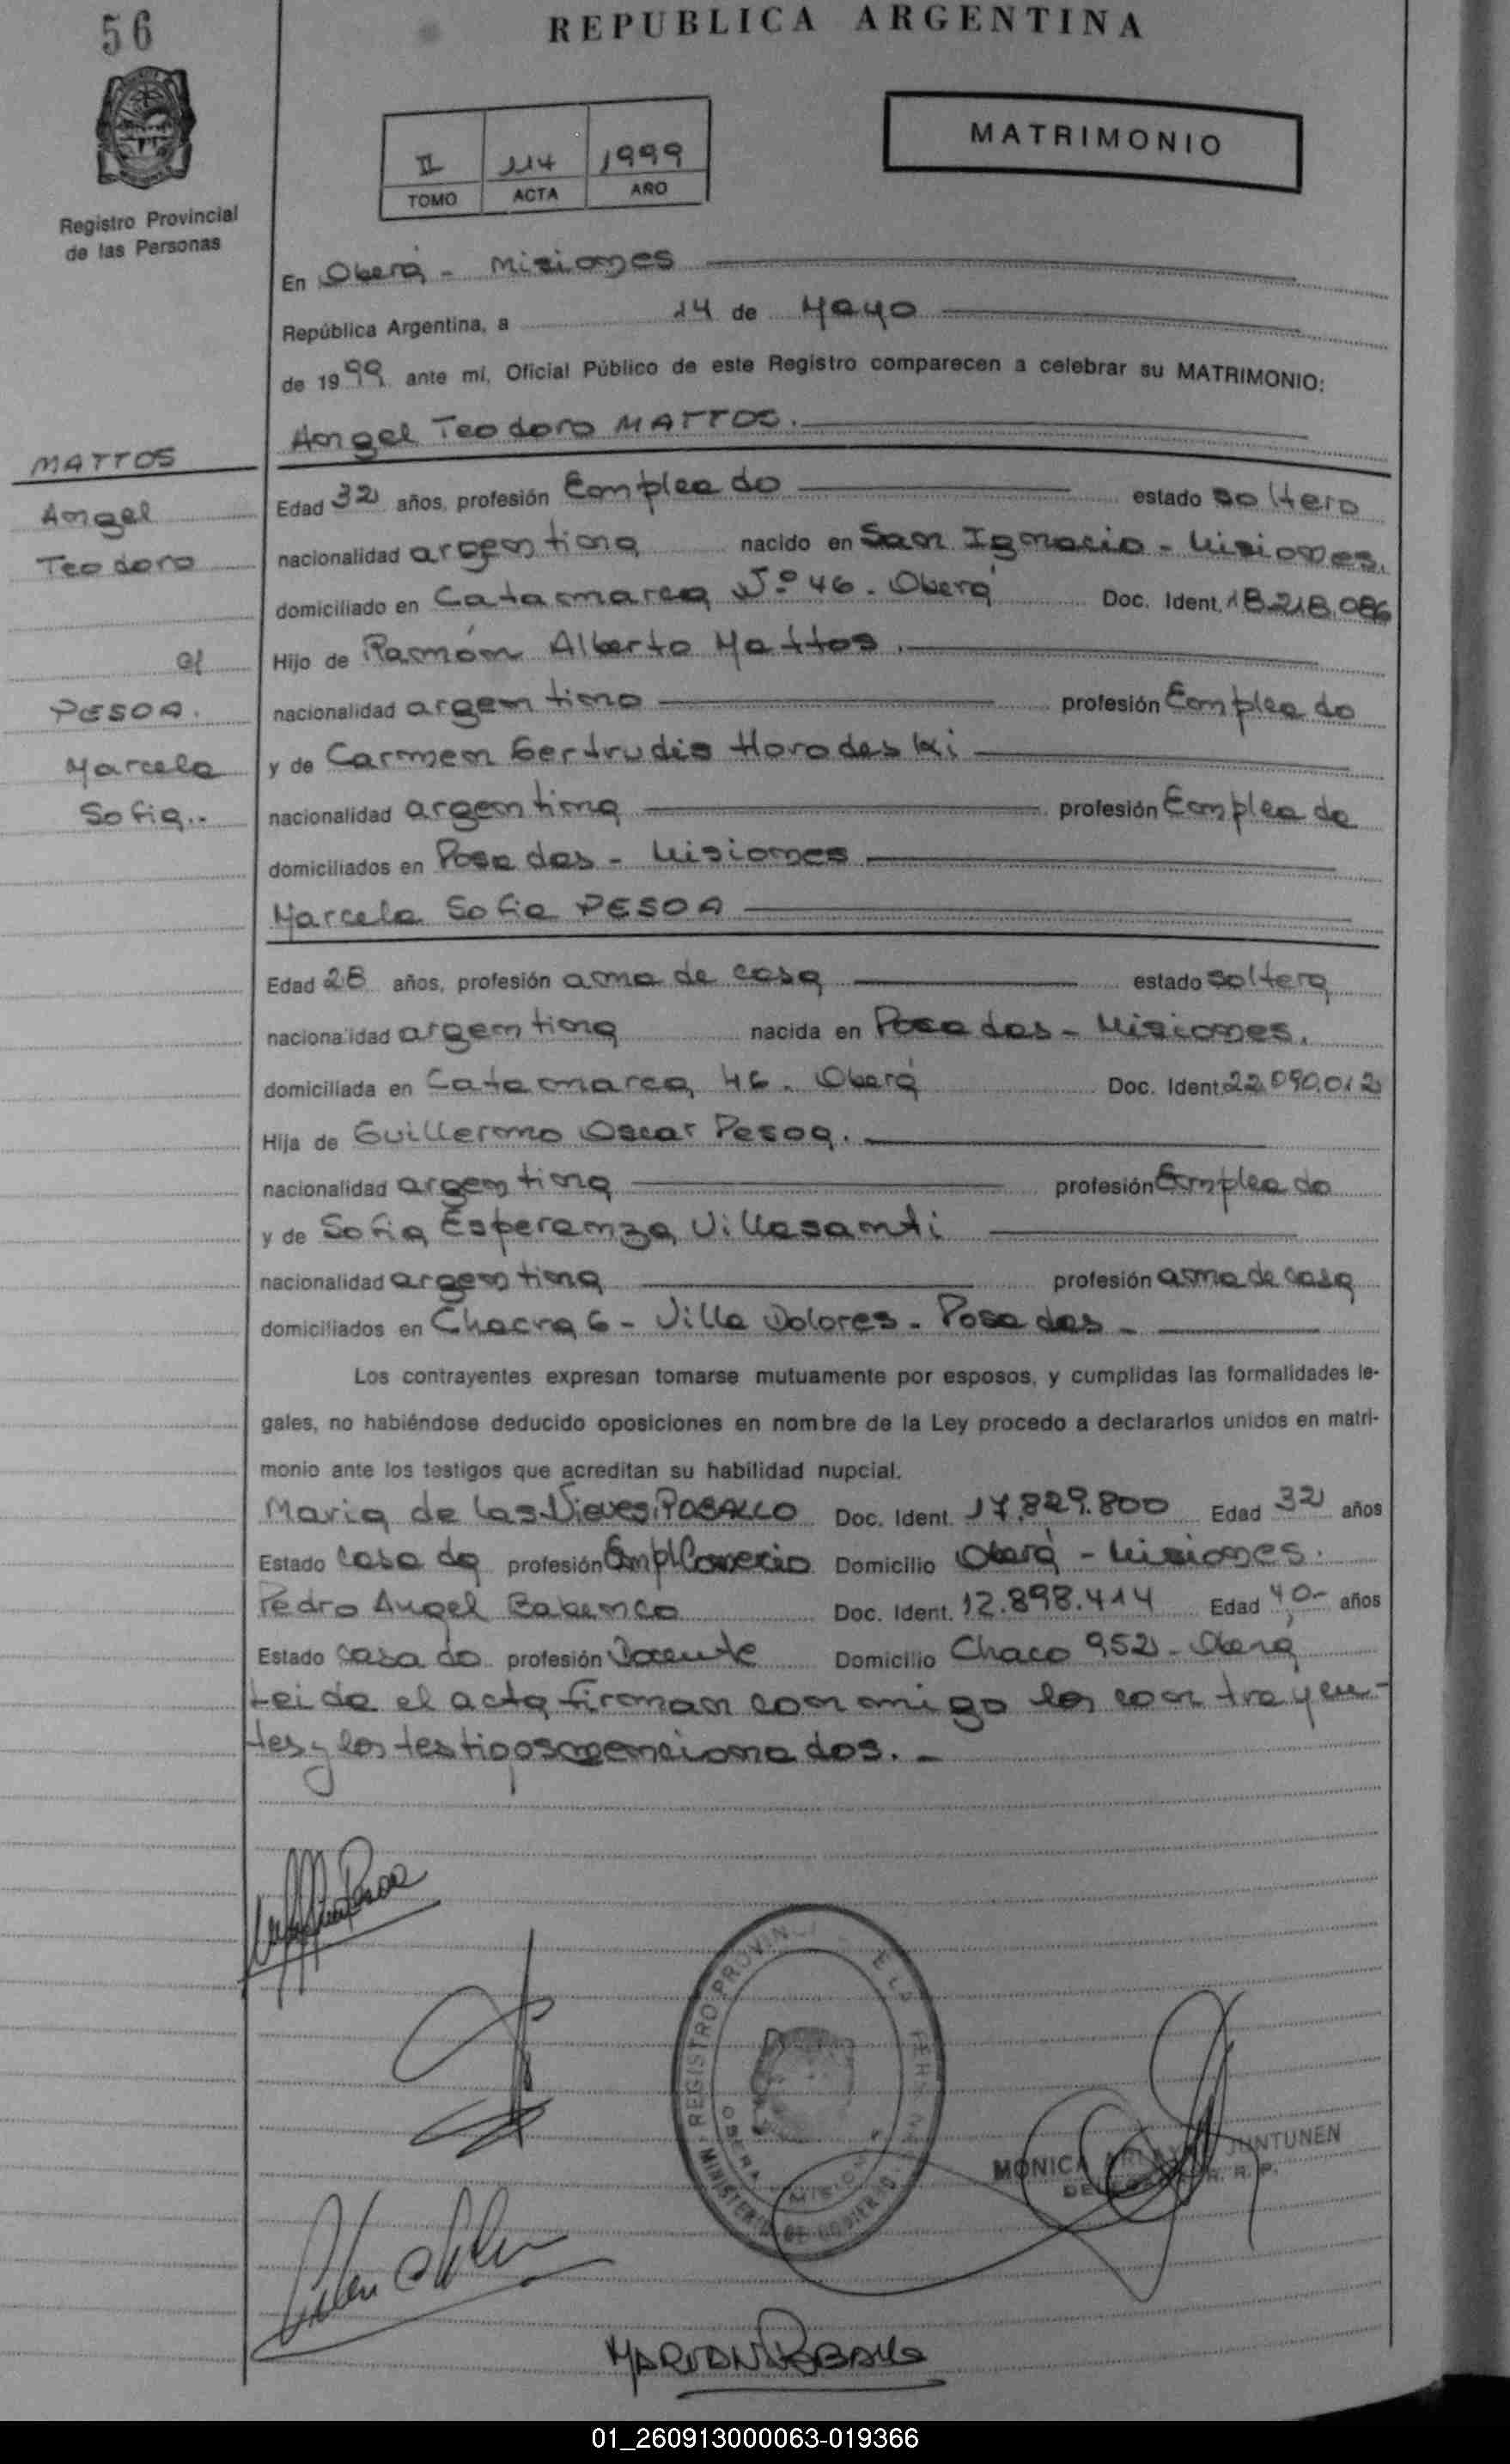 56
REPUBLICA ARGENTINA
MATRIMONIO
II 114 1999
TOMO ACTA AÑO
Registro Provincial
de las Personas
En Oberá - Misiones
República Argentina, a 14 de Mayo
de 1999 ante mí, Oficial Público de este Registro comparecen a celebrar su MATRIMONIO:
Angel Teodoro MATTOS.
MATTOS
Angel
Teodoro
c/
PESOA.
Marcela
Sofia..
Edad 32 años, profesión Empleado estado soltero
nacionalidad argentina nacido en San Ignacio - Misiones.
domiciliado en Catamarca Nº 46. Oberá Doc. Ident. 18.218.086
Hijo de Ramón Alberto Mattos.
nacionalidad argentino profesión Empleado
y de Carmen Gertrudis Horodeski
nacionalidad argentina profesión Empleada
domiciliados en Posadas - Misiones
Marcela Sofia PESOA
Edad 28 años, profesión ama de casa estado soltera
nacionalidad argentina nacida en Posadas - Misiones.
domiciliada en Catamarca 46. Oberá Doc. Ident. 22.090.012
Hija de Guillermo Oscar Pesoa.
nacionalidad argentina profesión Empleado
y de Sofia Esperanza Villasanti
nacionalidad argentina profesión ama de casa
domiciliados en Chacra 6 - Villa Dolores - Posadas -
Los contrayentes expresan tomarse mutuamente por esposos, y cumplidas las formalidades le-
gales, no habiéndose deducido oposiciones en nombre de la Ley procedo a declararlos unidos en matri-
monio ante los testigos que acreditan su habilidad nupcial.
Maria de las Nieves ROBALLO Doc. Ident. 17.829.800 Edad 32 años
Estado casada profesión Empl Comercio Domicilio Oberá - Misiones.
Pedro Angel Babenco Doc. Ident. 12.898.414 Edad 40.- años
Estado casado profesión Docente Domicilio Chaco 952 - Oberá
Leida el acta firman conmigo los contrayen-
tes y los testigos mencionados. -
REGISTRO PROVIN
MINISTERIO DE GOBIERNO
OBERA MISIONES
MONICA JUNTUNEN
R. P.
01_260913000063-019366